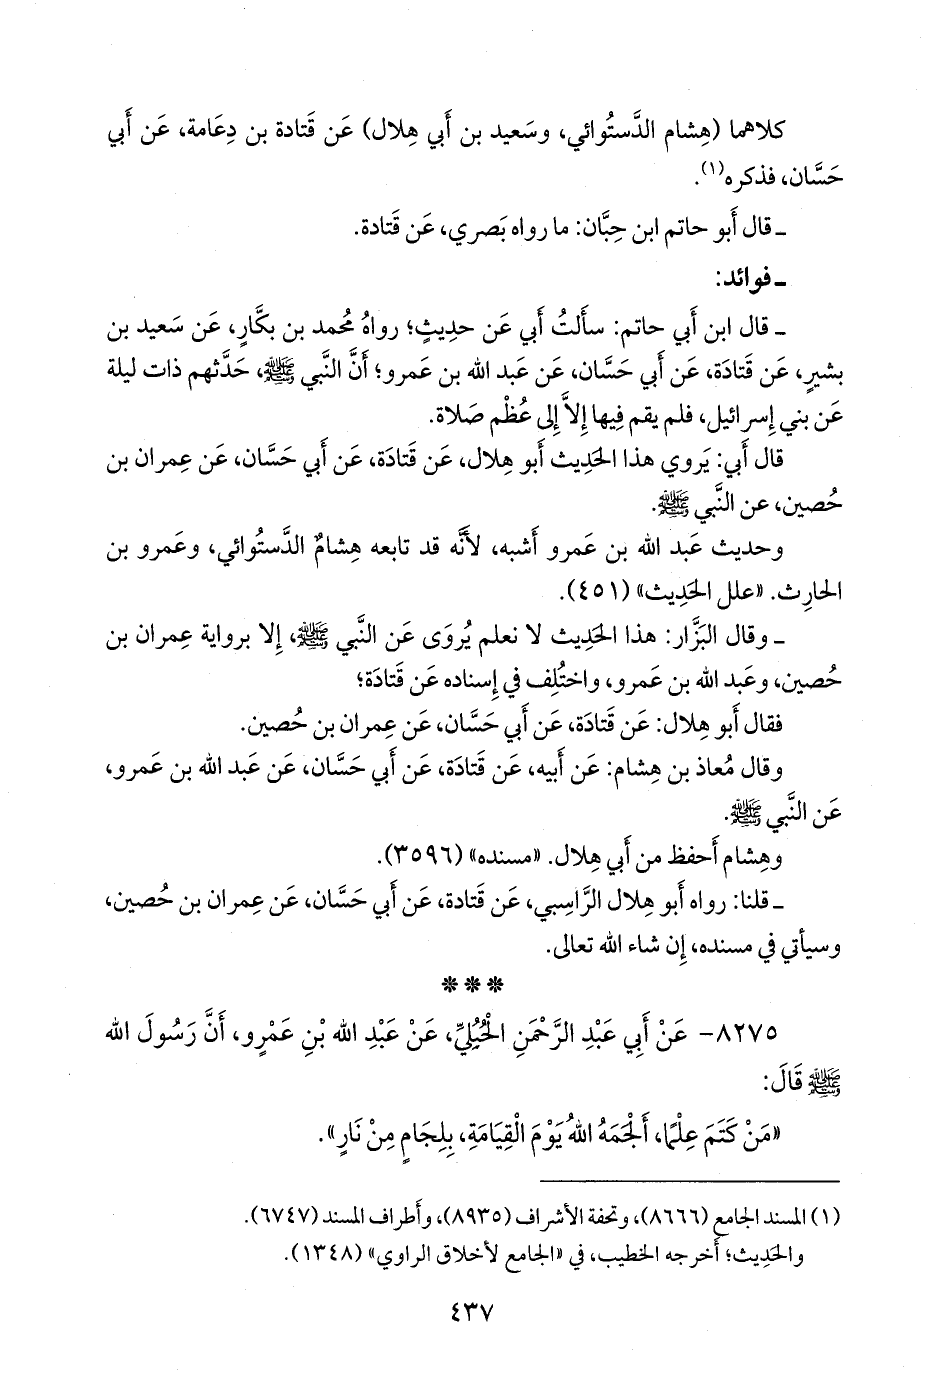 كلاهما (هِشام الدَّستُوائي، وسَعيد بن أَبي هِلال) عَن قَتادة بن دِعَامة، عَن أَبي
حَسَّان، فذكره(١).
ـ قال أَبو حاتم ابن حِبَّان: ما رواه بَصري، عَن قَتادة.
ـ فوائد:
ـ قال ابن أَبي حاتم: سأَلتُ أَبي عَن حديثٍ؛ رواهُ مُحمد بن بكَّارٍ، عَن سَعيد بن
بشيرٍ، عَن قَتادَة، عَن أَبي حَسَّان، عَن عَبد الله بن عَمرو؛ أَنَّ النَّبي ﷺ، حَدَّثهم ذات ليلة
عَن بني إِسرائيل، فلم يقم فِيها إِلاَّ إِلى عُظْم صَلاة.
قال أَبي: يَروي هذا الحَدِيث أَبو هِلال، عَن قَتادَة، عَن أَبي حَسَّان، عَن عِمران بن
حُصين، عن النَّبي ﷺ.
وحديث عَبد الله بن عَمرو أَشبه، لأَنَّه قد تابعه هِشامٌ الدَّستُوائي، وعَمرو بن
الحارِث. «علل الحَدِيث» (٤٥١).
ـ وقال البَزَّار: هذا الحَدِيث لا نعلم يُروَى عَن النَّبي ﷺ، إِلا برواية عِمران بن
حُصين، وعَبد الله بن عَمرو، واختُلِف في إِسناده عَن قَتادَة؛
فقال أَبو هِلال: عَن قَتادَة، عَن أَبي حَسَّان، عَن عِمران بن حُصين.
وقال مُعاذ بن هِشام: عَن أَبيه، عَن قَتادَة، عَن أَبي حَسَّان، عَن عَبد الله بن عَمرو،
عَن النَّبي ﷺ.
وهِشام أَحفظ من أَبي هِلال. «مسنده» (٣٥٩٦).
ـ قلنا: رواه أَبو هِلال الرَّاسِبي، عَن قَتادة، عَن أَبي حَسَّان، عَن عِمران بن حُصين،
وسيأتي في مسنده، إِن شاء الله تعالى.
***
٨٢٧٥- عَنْ أَبِي عَبْدِ الرَّحْمَنِ الْحُبُلِيِّ، عَنْ عَبْدِ الله بْنِ عَمْرٍو، أَنَّ رَسُولَ الله
ﷺ قَالَ:
«مَنْ كَتَمَ عِلْمًا، أَلْجَمَهُ اللهُ يَوْمَ الْقِيَامَةِ، بِلِجَامٍ مِنْ نَارٍ».
(١) المسند الجامع (٨٦٦٦)، وتحفة الأشراف (٨٩٣٥)، وأَطراف المسند (٦٧٤٧).
والحَدِيث؛ أَخرجه الخطيب، في «الجامع لأخلاق الراوي» (١٣٤٨).
٤٣٧